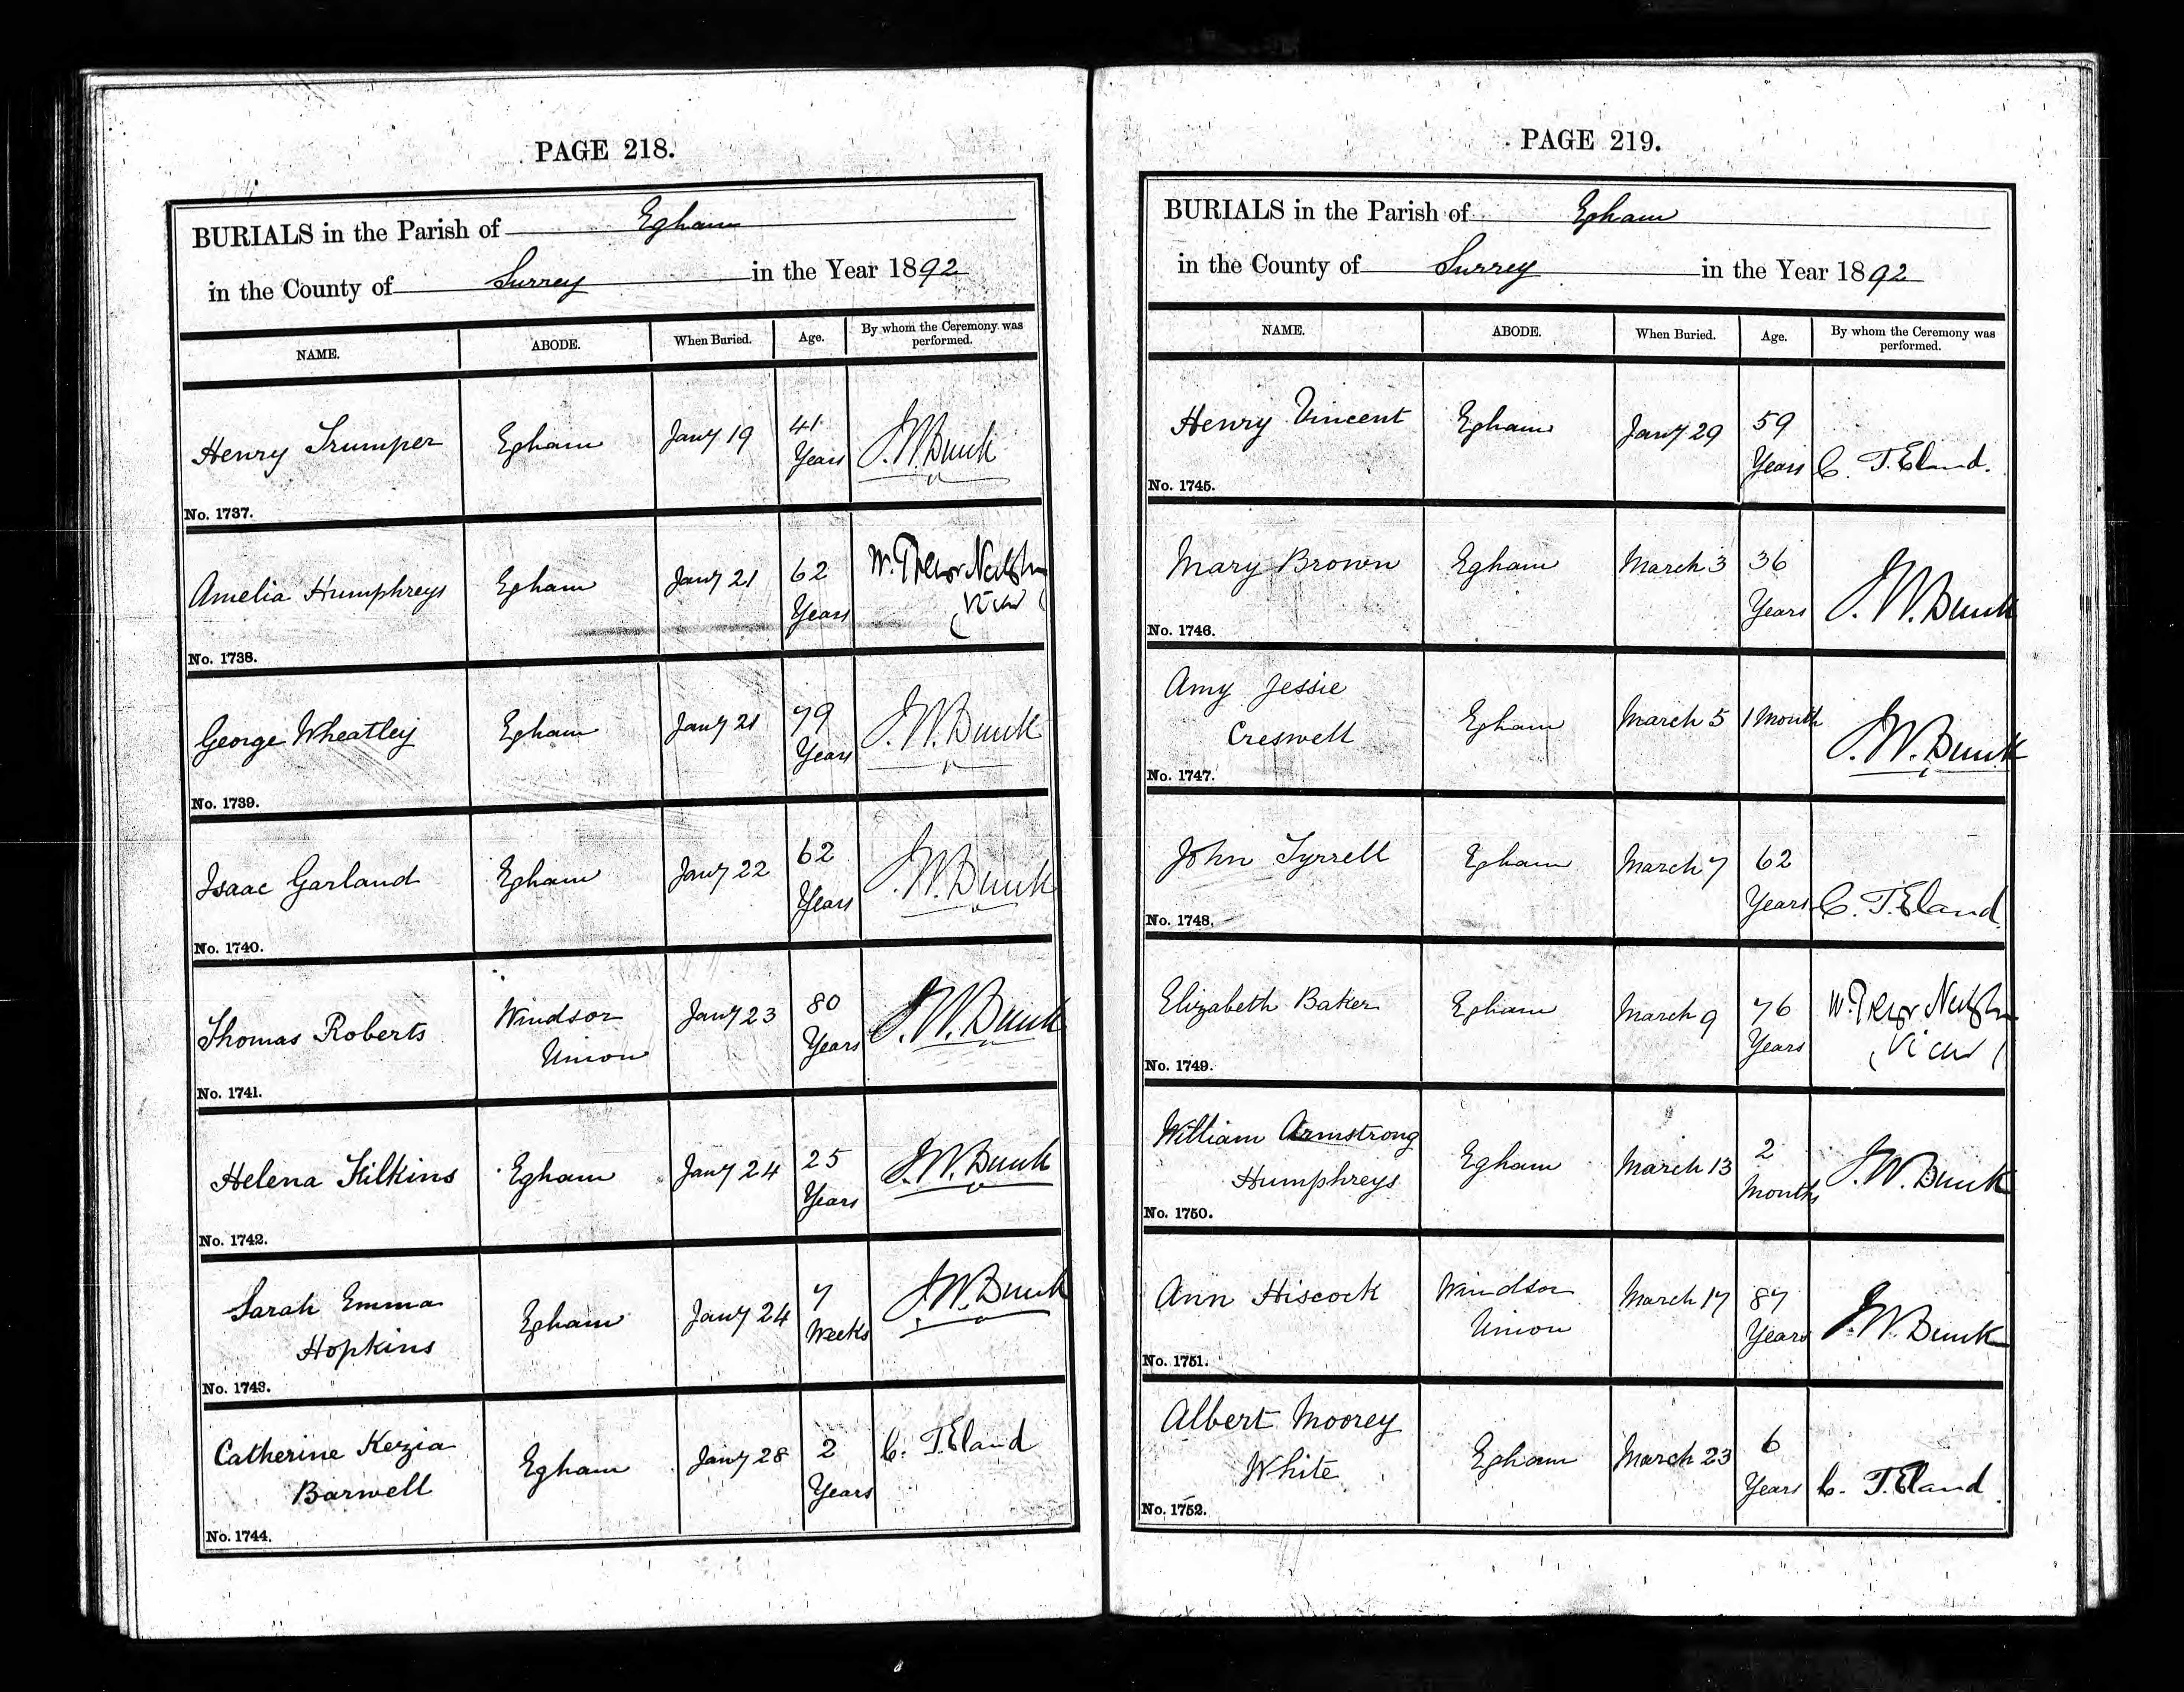 PAGE 218.
BURIALS in the Parish of Egham
in the County of Surrey in the Year 1892
NAME. ABODE. When Buried. Age. By whom the Ceremony was performed.
Henry Trumper Egham Jany 19 41 Years J. W. Bunk
No. 1737.
Amelia Humphreys Egham Jany 21 62 Years W. Trevor (Vicar)
No. 1738.
George Wheatley Egham Jany 21 79 Years J. W. Bunk
No. 1739.
Isaac Garland Egham Jany 22 62 Years J. W. Bunk
No. 1740.
Thomas Roberts Windsor Union Jany 23 80 Years J. W. Bunk
No. 1741.
Helena Filkins Egham Jany 24 25 Years J. W. Bunk
No. 1742.
Sarah Emma Hopkins Egham Jany 24 7 Weeks J. W. Bunk
No. 1743.
Catherine Kezia Barwell Egham Jany 28 2 Years C. T. Eland
No. 1744.
PAGE 219.
BURIALS in the Parish of Egham
in the County of Surrey in the Year 1892
NAME. ABODE. When Buried. Age. By whom the Ceremony was performed.
Henry Vincent Egham Jany 29 59 Years C. T. Eland.
No. 1745.
Mary Brown Egham March 3 36 Years J. W. Bunk
No. 1746.
Amy Jessie Creswell Egham March 5 1 Month J. W. Bunk
No. 1747.
John Tyrrell Egham March 7 62 Years C. T. Eland
No. 1748.
Elizabeth Baker Egham March 9 76 Years W. Trevor (Vicar)
No. 1749.
William Armstrong Humphreys Egham March 13 2 Months J. W. Bunk
No. 1750.
Ann Hiscock Windsor Union March 17 87 Years J. W. Bunk
No. 1751.
Albert Moorey White Egham March 23 6 Years C. T. Eland
No. 1752.